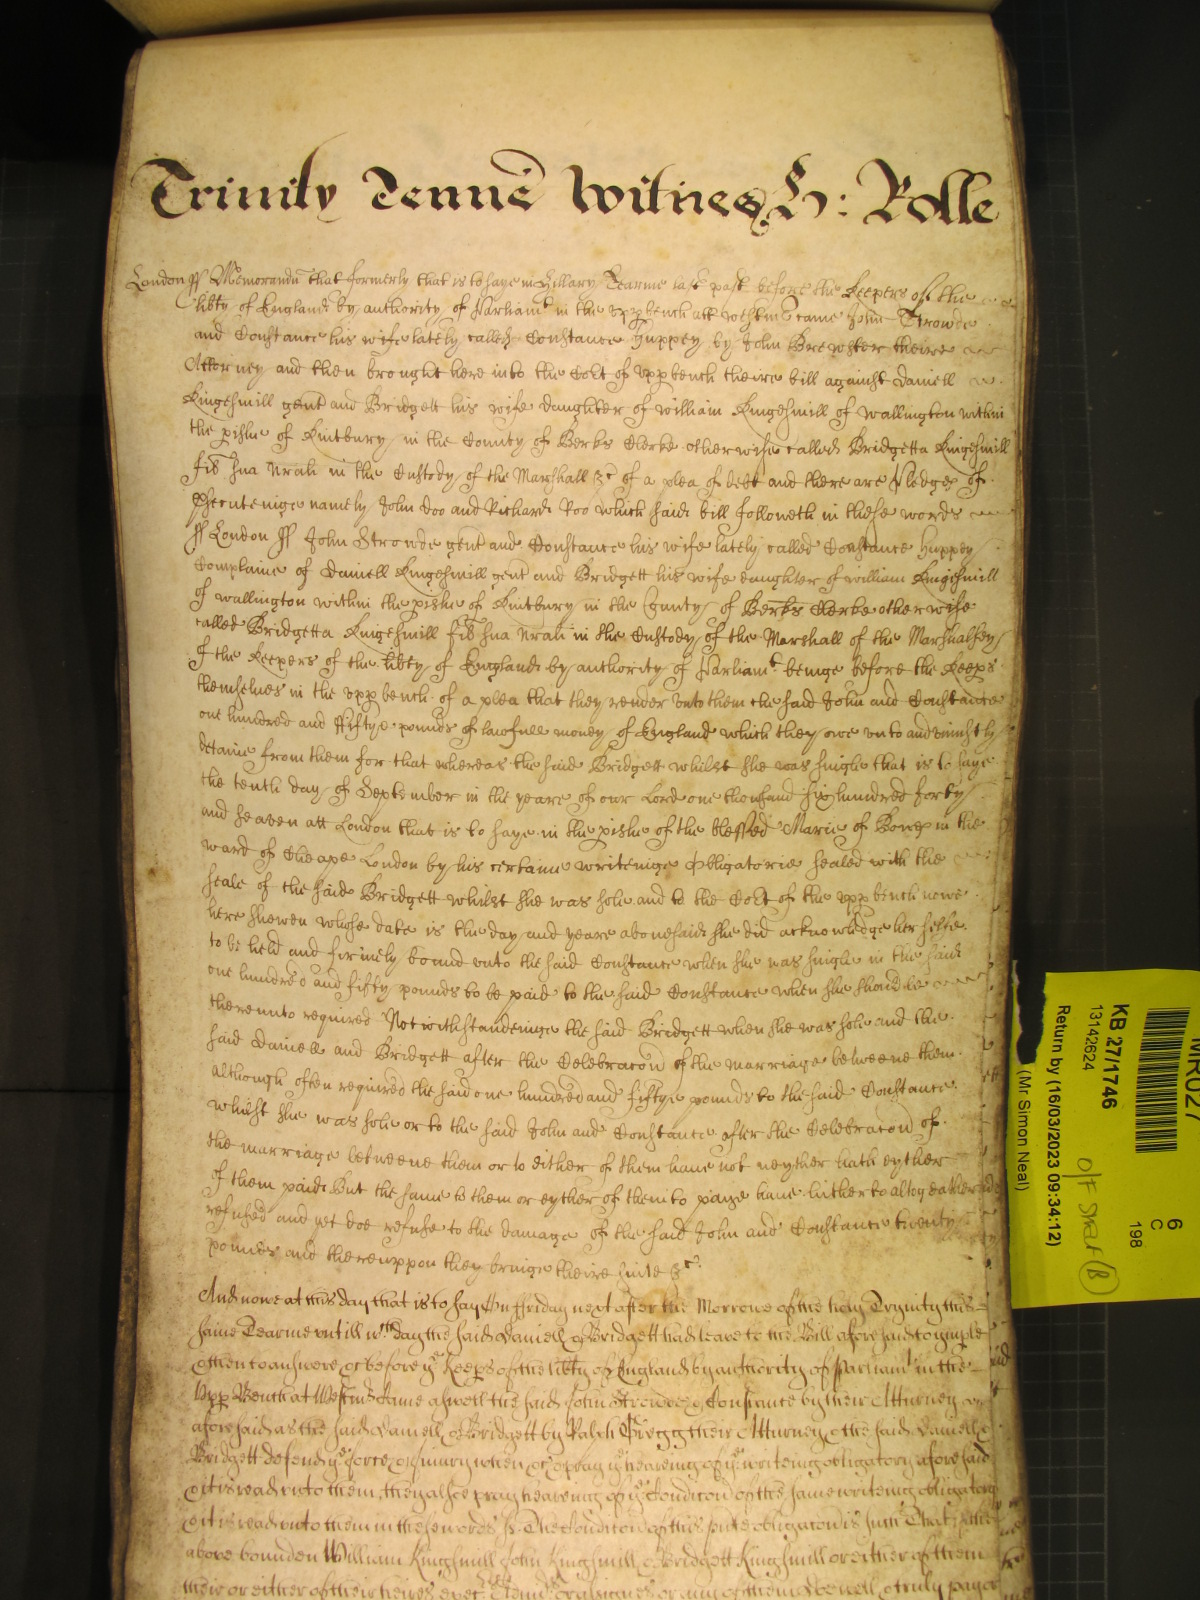 Trinity Terme Witnes H: Rolle
London ss Memorandu that formerly that is to saye in Hillary Tearme last past before the Keepers of the
libty of England by authority of Parliamt in the upp bench att Westmr came John Strowde
and Constance his wife lately called Constance Huppey by John Brewster theire
Attorney and then brought here into the Cort of upp bench theire bill against Daniell
Kingesmill gent and Bridgett his wife daughter of William Kingesmill of Wallington within
the pishe of Kintbury in the County of Berks Clerke otherwise called Bridgetta Kingesmill
in the Custody of the Marshall &c of a plea of debt and there are pledges of
psecuteinge namely John Doo and Richard Roo which said bill followeth in these words
ss London ss John Strowde gent and Constance his wife lately called Constance Huppey
Complaine of Daniell Kingesmill gent and Bridgett his wife daughter of William Kingesmill
of Wallington within the pishe of Kintbury in the County of Berks Clerke otherwise
called Bridgetta Kingesmill in the Custody of the Marshall of the Marshalsey
of the Keepers of the libty of England by authority of Parliamt beinge before the Keeps
themselves in the upp bench of a plea that they render unto them the said John and Constance
one hundred and fiftye pounds of lawfull money of England which they owe unto and uniustly
detaine from them for that whereas the said Bridgett whilst she was single that is to saye
the tenth day of September in the yeare of our Lord one thousand six hundred forty
and seaven att London that is to saye in the pishe of the blessed Marie of Bowe in the
ward of Cheape London by his certaine writeinge obligatorie sealed with the
seale of the said Bridgett whilst she was sole and to the Cort of the upp bench nowe
here shewen whose date is the day and yeare abovesaid she did acknowledge her selfe
to be held and firmely bound unto the said Constance when she was single in the said
one hundred and fifty pounds to be paid to the said Constance when she should be
thereunto required Notwithstandeinge the said Bridgett when she was sole and the
said Daniell and Bridgett after the Celebracon of the marriage betweene them
although often required the said one hundred and fiftye pounds to the said Constance
whilst she was sole or to the said John and Constance after the Celebracon of
the marriage betweene them or to either of them have not neyther hath eyther
of them paid But the same to them or eyther of them to paye have hitherto altogeather
refused and yet doe refuse to the damage of the said John and Constance twenty
pounds and thereuppon they bringe theire suite &c
And nowe at this day that is to say on ffriday next after the Morrowe of the holy Trynity this
same Tearme untill wch day the said Daniell & Bridgett had leave to the Bill aforesaid to imple
& then to answere &c before ye Keeps of the libty of England by authority of Parliamt in the
Upp Bench at Westmr Came aswell the said John Strowde & Constance by their Atturney
aforesaid as the said Daniell & Bridgett by Ralph their Atturney & the said Daniell &
Bridgett defend ye force & iniury when &c & pray ye heareing of ye writeing obligatory aforesaid
& it is read unto them, they alsoe pray heareing of ye Condicon of the same writeing obligatory
& it is read unto them in these words ss The Condicon of this obligacon is such That if the
above bounden William Kingsmill John Kingsmill & Bridgett Kingsmill or either of them
their or either of their heires exec or assignes or any of them doe well & truly pay or
MR027
KB 27/1746
13142624
Return by (16/03/2023 09:34:12)
(Mr Simon Neal)
6
C
198